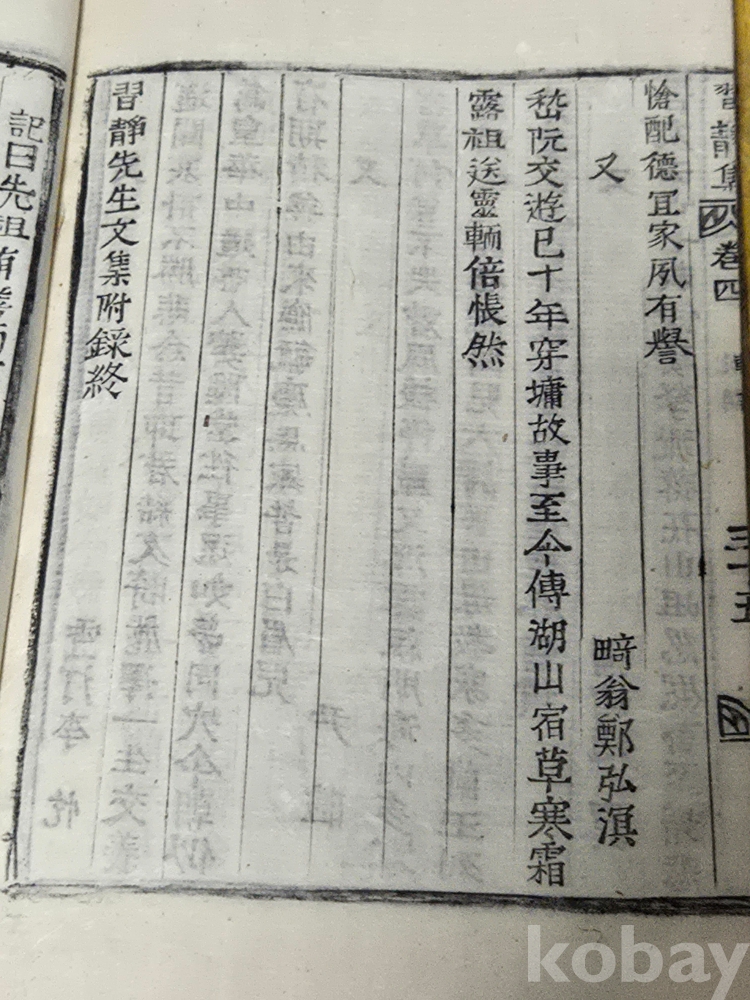 習靜集
卷四
三十五
愴配德宜家夙有譽
又
畸翁鄭弘溟
嵇阮交遊已十年穿墉故事至今傳湖山宿草寒霜
露祖送靈輀倍悵然
習靜先生文集附錄終
記曰先祖有
kobay